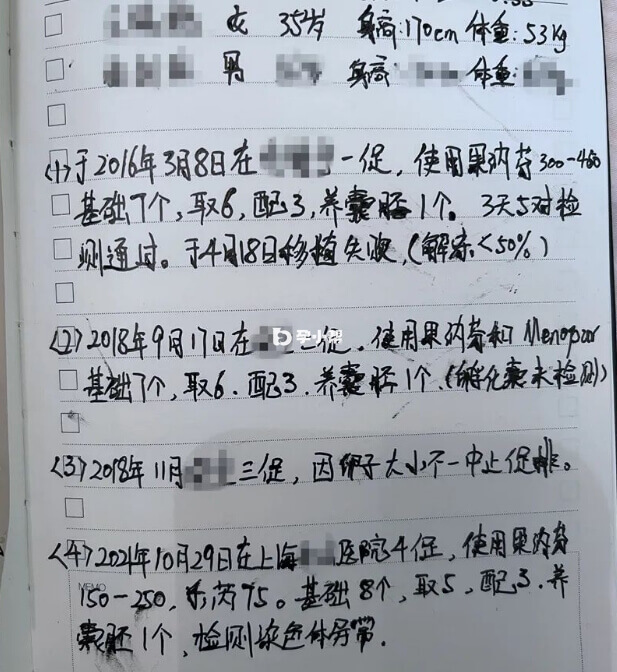 女 35岁 身高:170cm 体重:53kg
男 身高: 体重:
<1>于2016年3月8日在 一促，使用果纳芬300-460
基础7个，取6，配3，养囊胚1个。3天5对检
测通过。于4月18日移植失败，(解冻<50%)
<2>2018年9月17日在 二促，使用果纳芬和Menopur
孕小帮
基础7个，取6．配3．养囊胚1个．(孵化囊未检测)
<3>2018年11月 三促，因卵子大小不一中止促排。
<4>2021年10月29日在上海 医院4促，使用果纳芬
MEMO
150-250，乐芮75。基础8个，取5，配3．养
囊胚1个，检测染色体异常．